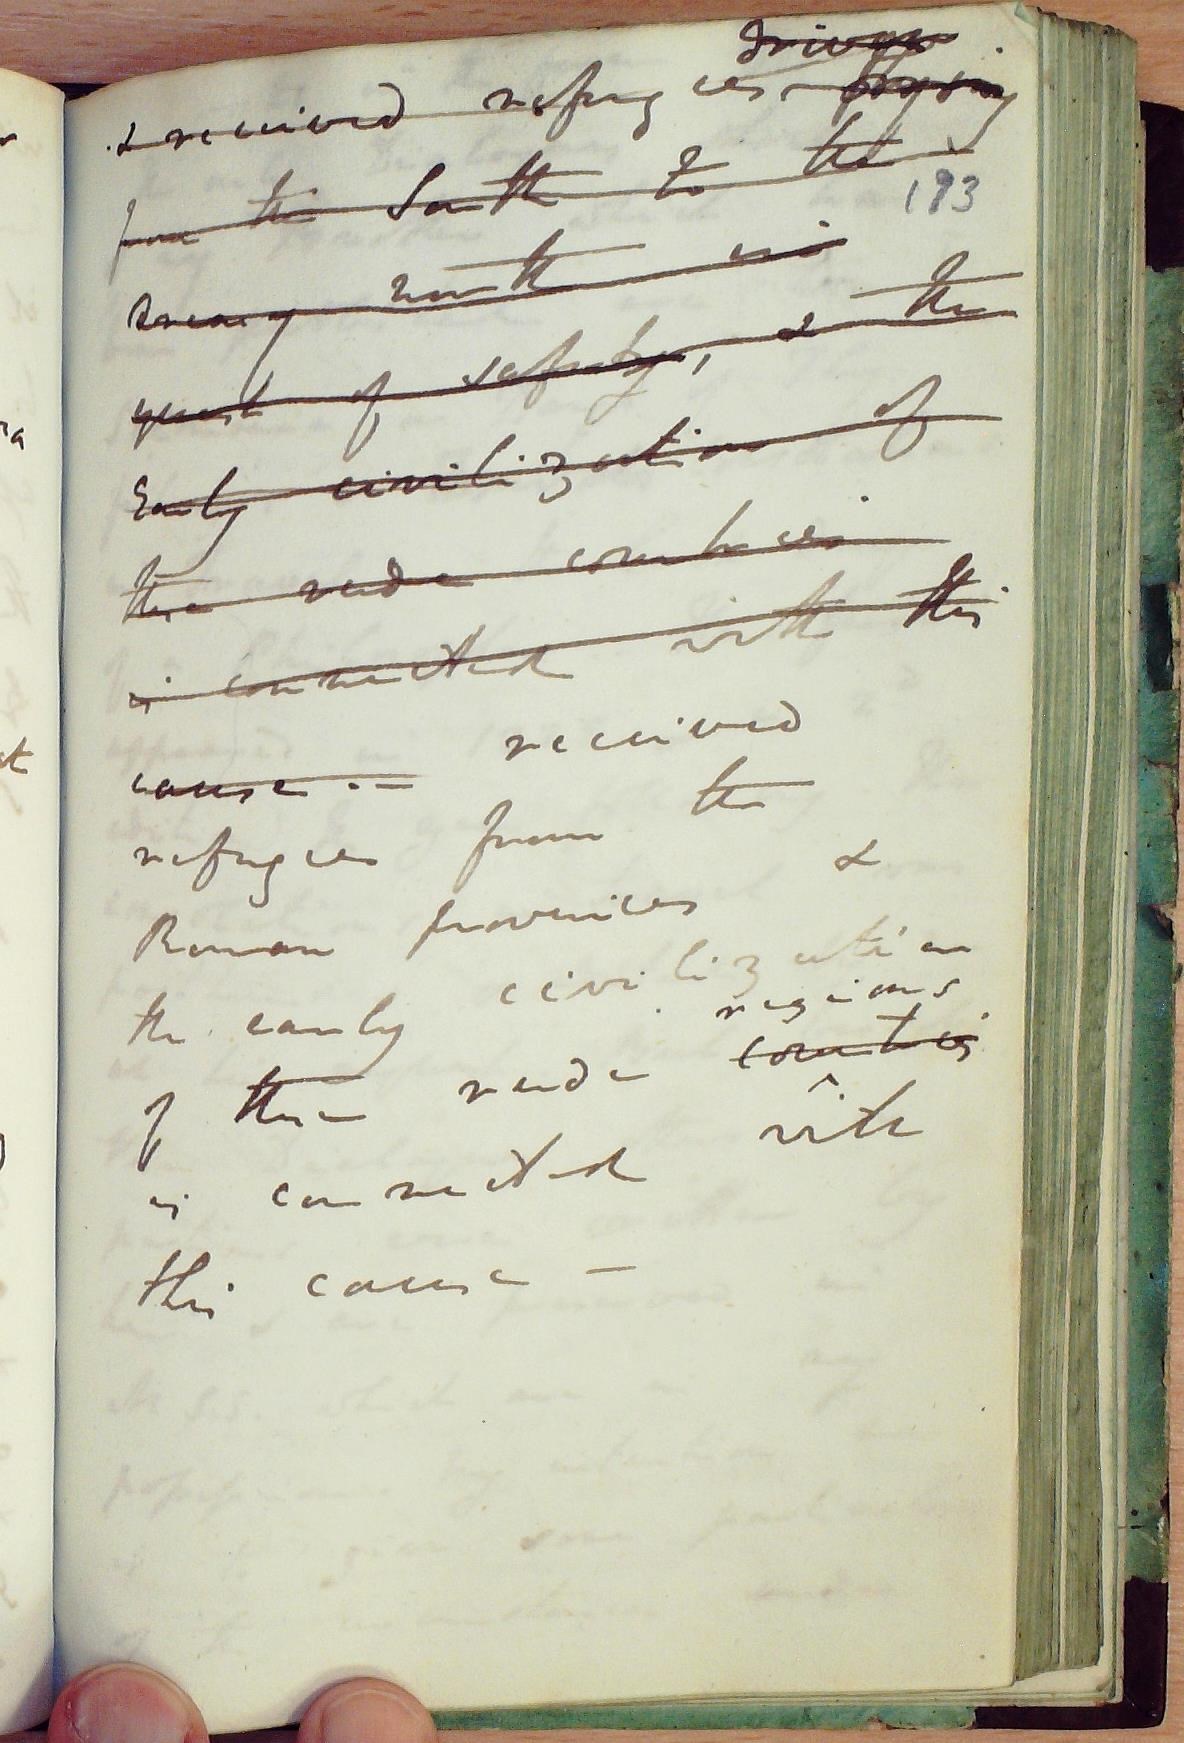 driven
& received refugees flying
from the South to the
193
dreary north in
quest of safety, & the
Early civilization of
these rude countries
is connected with this
cause. — received
refugees from the
Roman provinces &
the early civilization
regions
of these rude countries
^
is connected with
this cause —